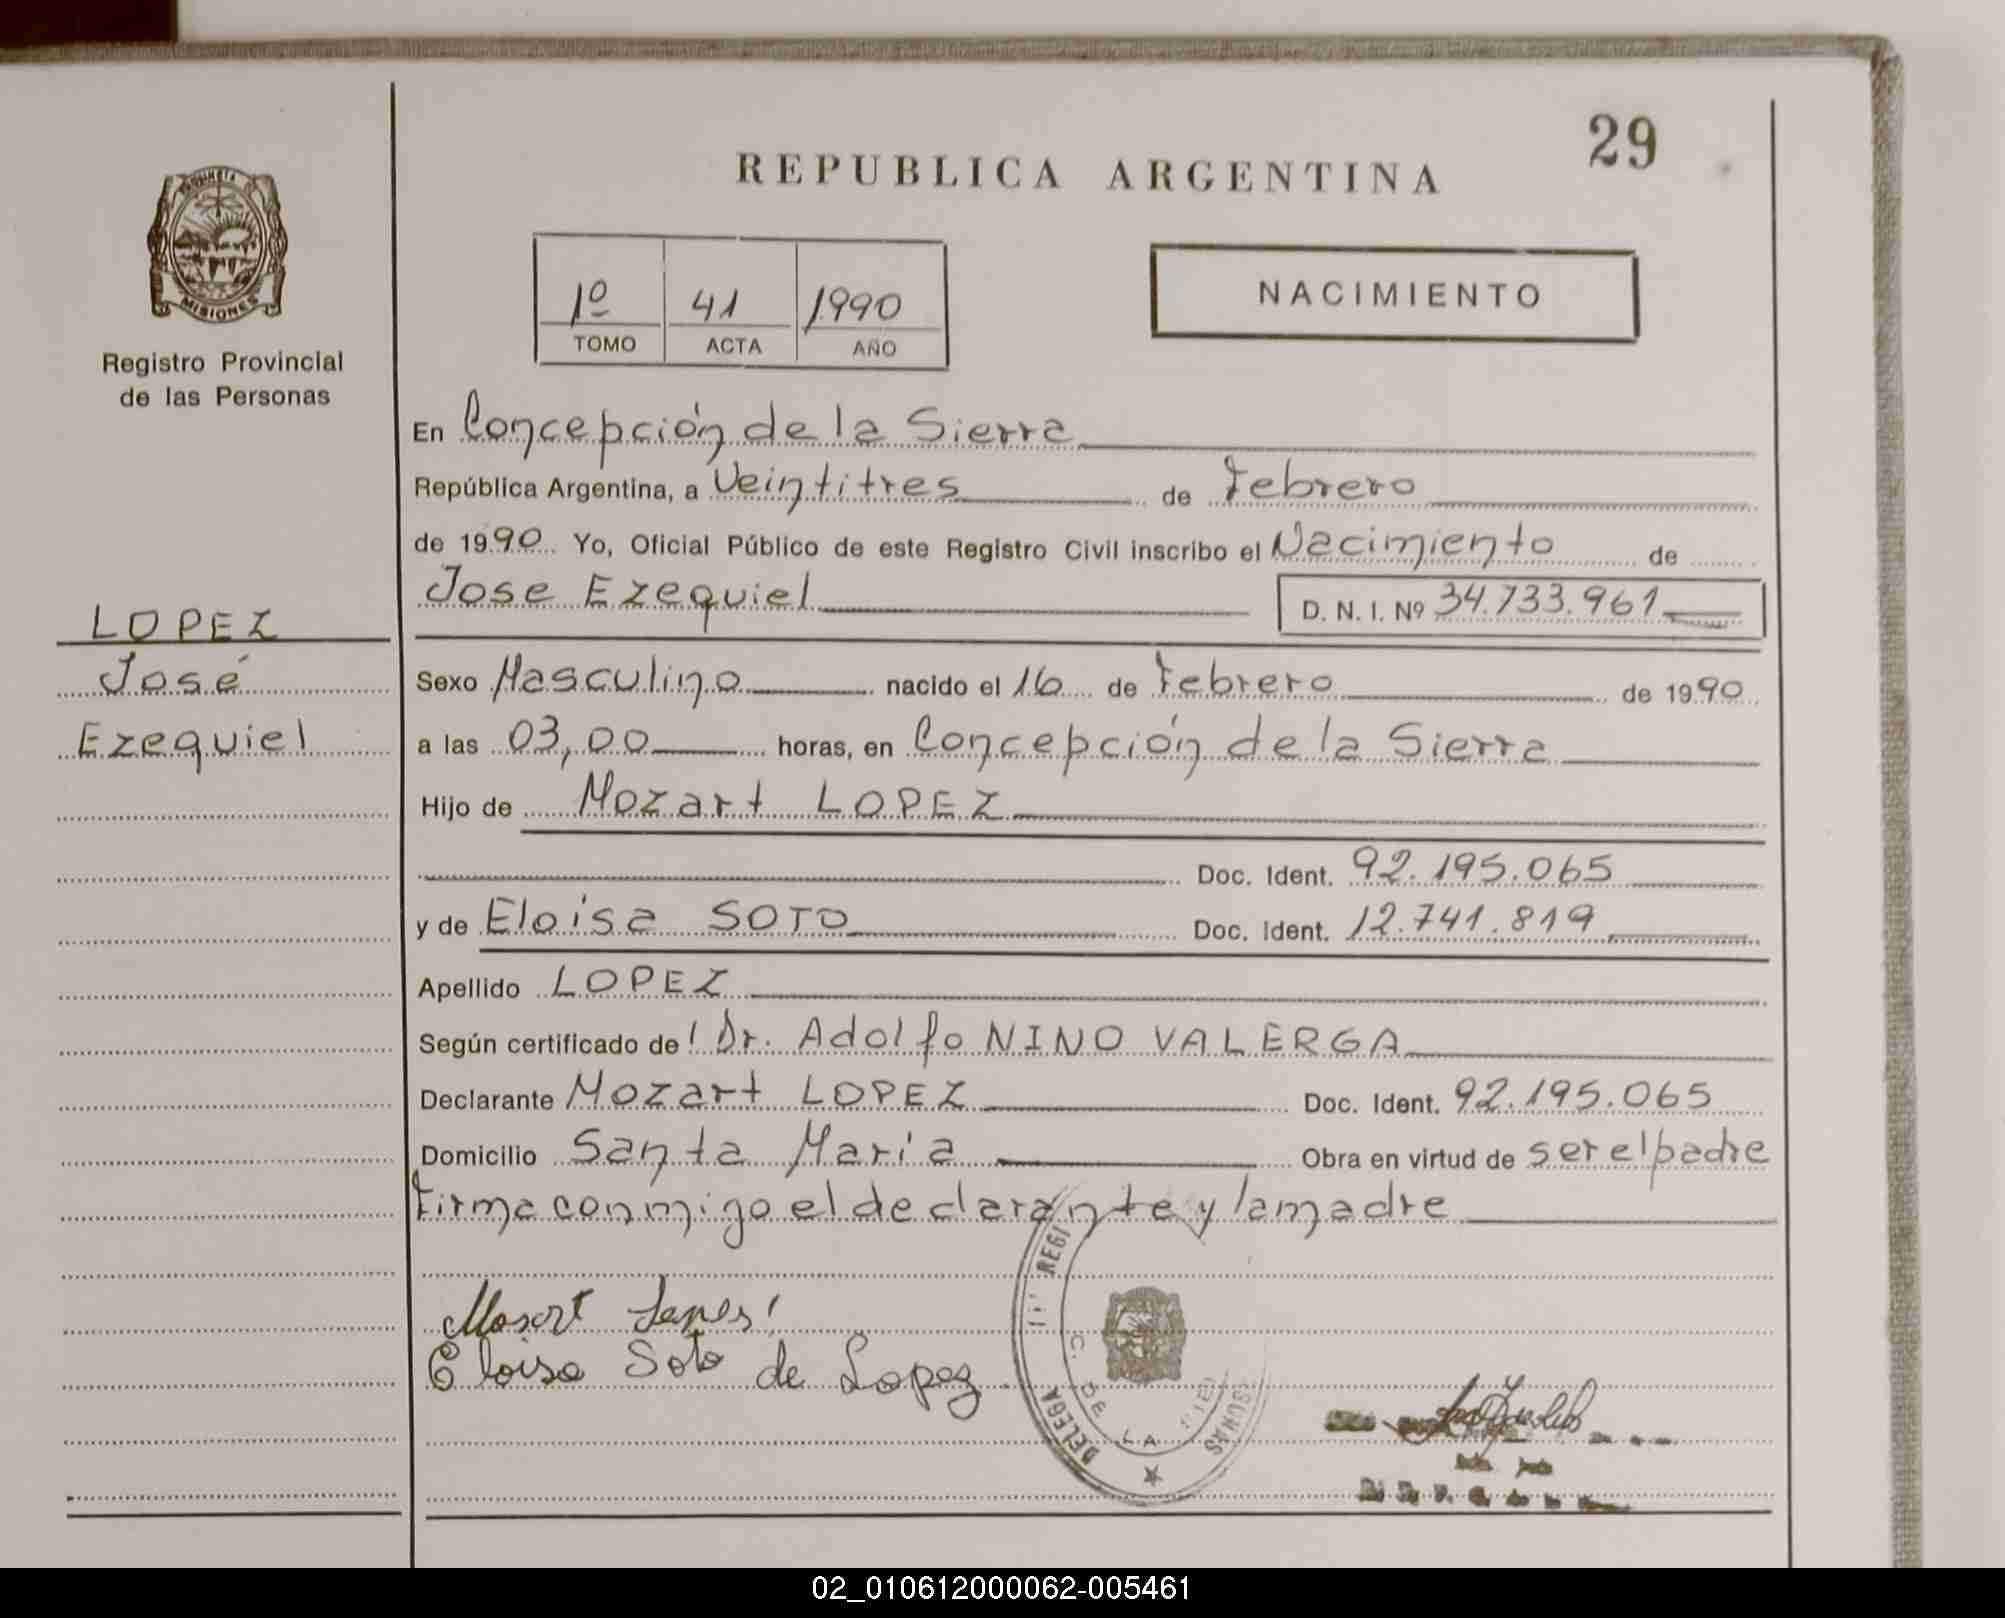 29
REPUBLICA ARGENTINA
PROVINCIA D
MISIONES
Registro Provincial
de las Personas
1º 41 1990
TOMO ACTA AÑO
NACIMIENTO
En Concepción de la Sierra
República Argentina, a Veintitres de Febrero
de 1990 Yo, Oficial Público de este Registro Civil inscribo el Nacimiento de
Jose Ezequiel D. N. I. Nº 34.733.961
LOPEZ
José
Ezequiel
Sexo Masculino nacido el 16 de Febrero de 1990
a las 03,00 horas, en Concepción de la Sierra
Hijo de Mozart LOPEZ
Doc. Ident. 92.195.065
y de Eloisa SOTO Doc. Ident. 12.741.819
Apellido LOPEZ
Según certificado del Dr. Adolfo NINO VALERGA
Declarante Mozart LOPEZ Doc. Ident. 92.195.065
Domicilio Santa María Obra en virtud de ser el padre
Firma conmigo el declarante y la madre
Mosart Lopes
Eloisa Soto de Lopez
REGI
DELEGA
C. DE LA SIE
02_010612000062-005461